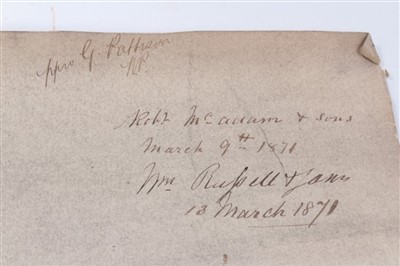 ppro G. Pattison
Robt. McAdam & sons
March 9th 1871
Wm Russell & Sons
13 March 1871